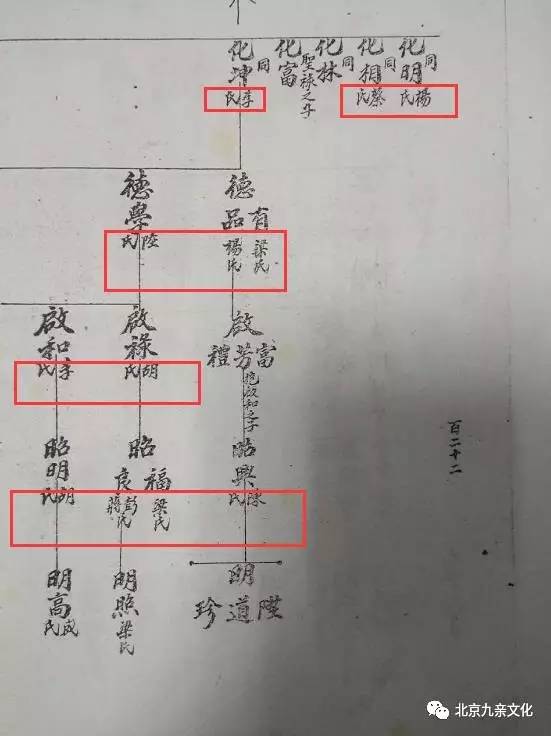 化明 同 楊氏
化相 同 蔡氏
化林 同
化富 聖祿之子
化坤 同 李氏
德
有 梁氏
品 楊氏
德學 陸氏
啟
富
芳 抱啟和之子
禮
啟祿 胡氏
啟和 李氏
昭興 陳氏
昭
福 梁氏
良 彭氏 蔣氏
昭明 胡氏
明
陞
道
珍
明照 梁氏
明高 成氏
百二十二
北京九亲文化